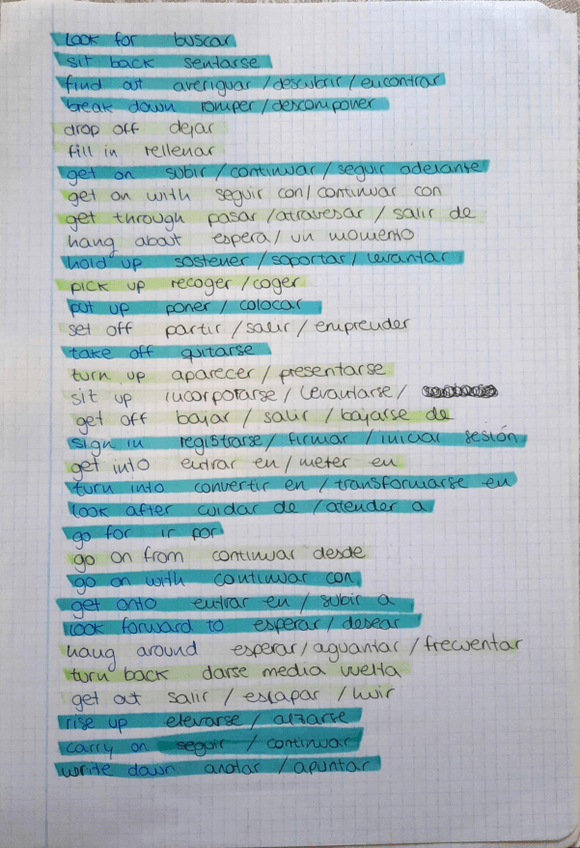 look for buscar
sit back sentarse
find out averiguar / descubrir / encontrar
break down romper / descomponer
drop off dejar
fill in rellenar
get on subir / continuar / seguir adelante
get on with seguir con / continuar con
get through pasar / atravesar / salir de
hang about espera / un momento
hold up sostener / soportar / levantar
pick up recoger / coger
put up poner / colocar
set off partir / salir / emprender
take off quitarse
turn up aparecer / presentarse
sit up incorporarse / levantarse /
get off bajar / salir / bajarse de
sign in registrarse / firmar / iniciar sesión
get into entrar en / meter en
turn into convertir en / transformarse en
look after cuidar de / atender a
go for ir por
go on from continuar desde
go on with continuar con
get onto entrar en / subir a
look forward to esperar / desear
hang around esperar / aguantar / frecuentar
turn back darse media vuelta
get out salir / escapar / huir
rise up elevarse / alzarse
carry on seguir / continuar
write down anotar / apuntar